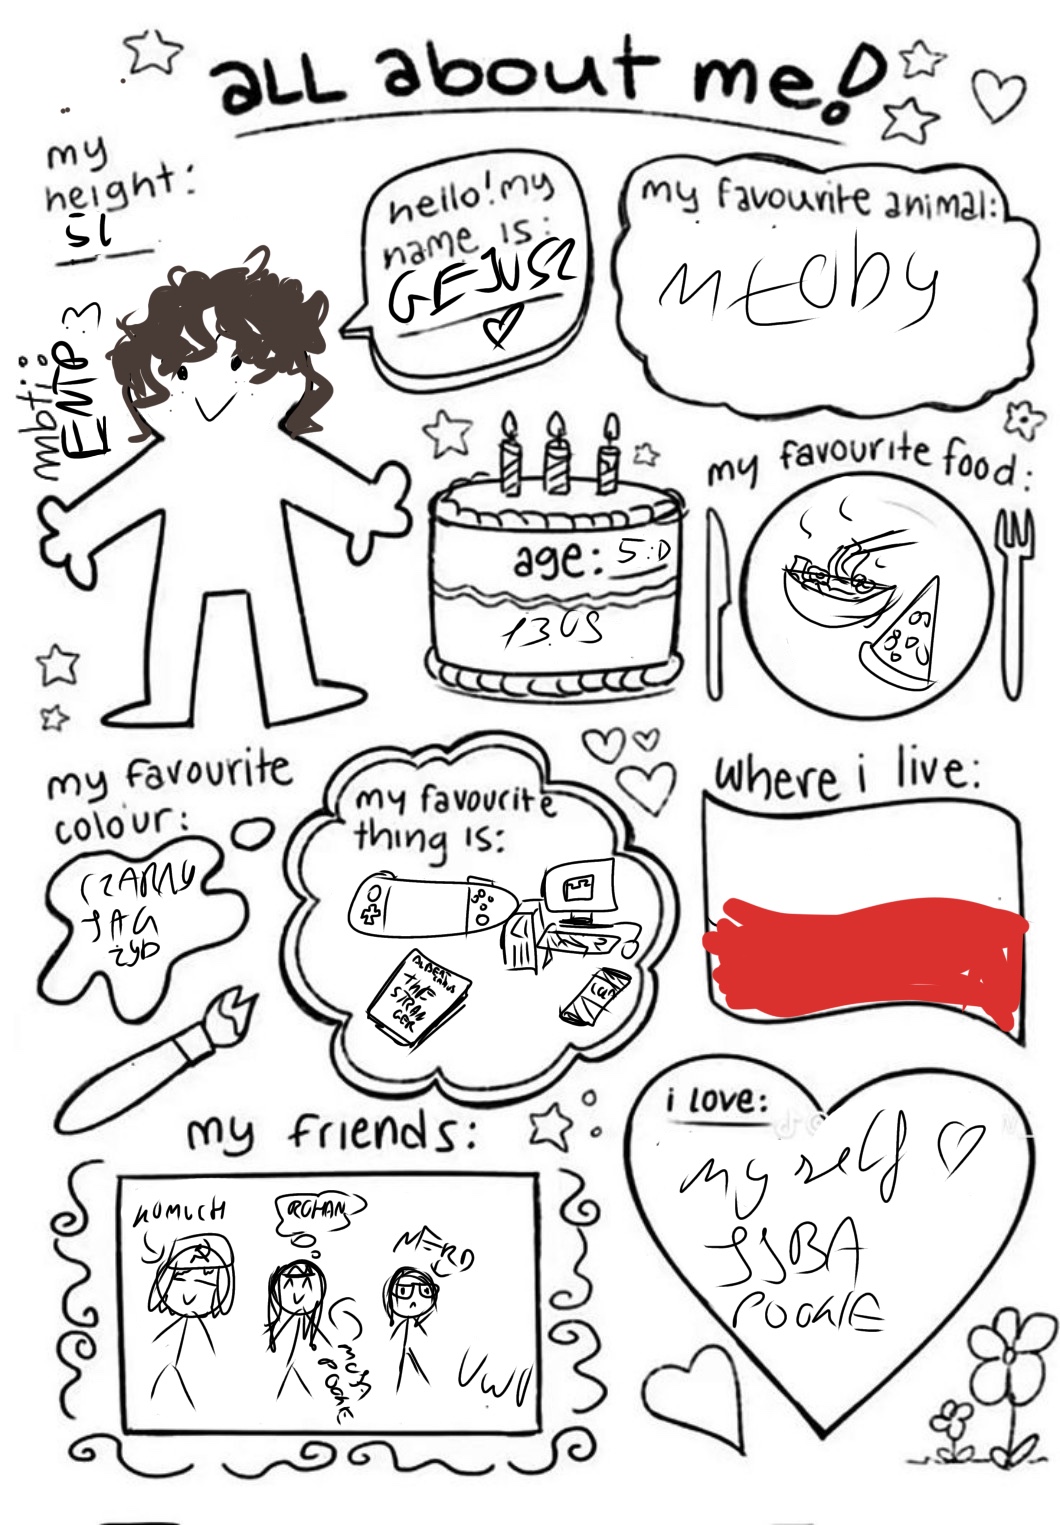 all about me!
my
height:
51
hello! my
name is:
GEJUSZ
my favourite animal:
mbti:
ENTP :3
my favourite food:
age: 5:D
13.05
my favourite
colour:
CZARNY
JAG
ŻYD
my favourite
thing is:
ALBERT
CAMUS
THE
STRAN
GER
where i live:
my friends:
KOMUCH
ROHAN
NERD
MOJA
POOKIE
UWU
i love:
my self
JJBA
POOKIE